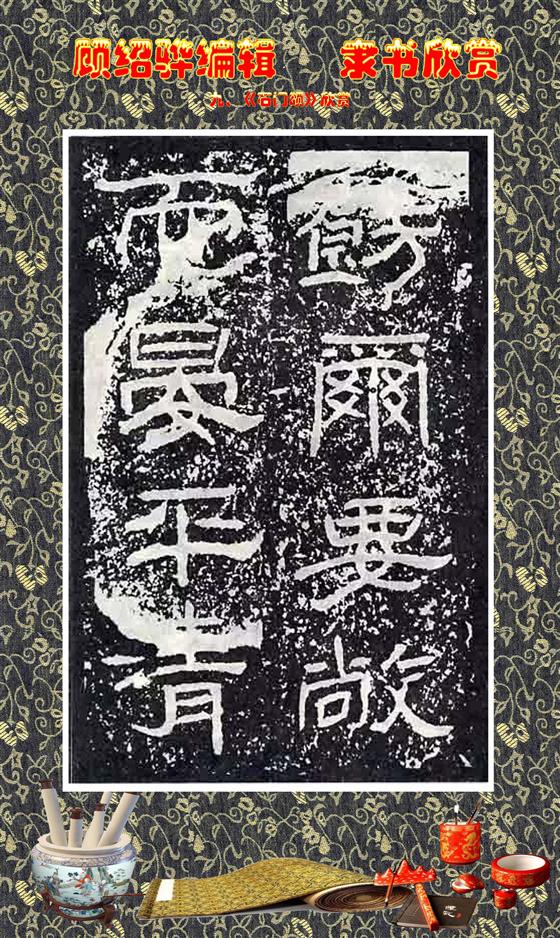 顾绍骅编辑 隶书欣赏
九、《石门颂》欣赏
飭爾要敞
而晏平清